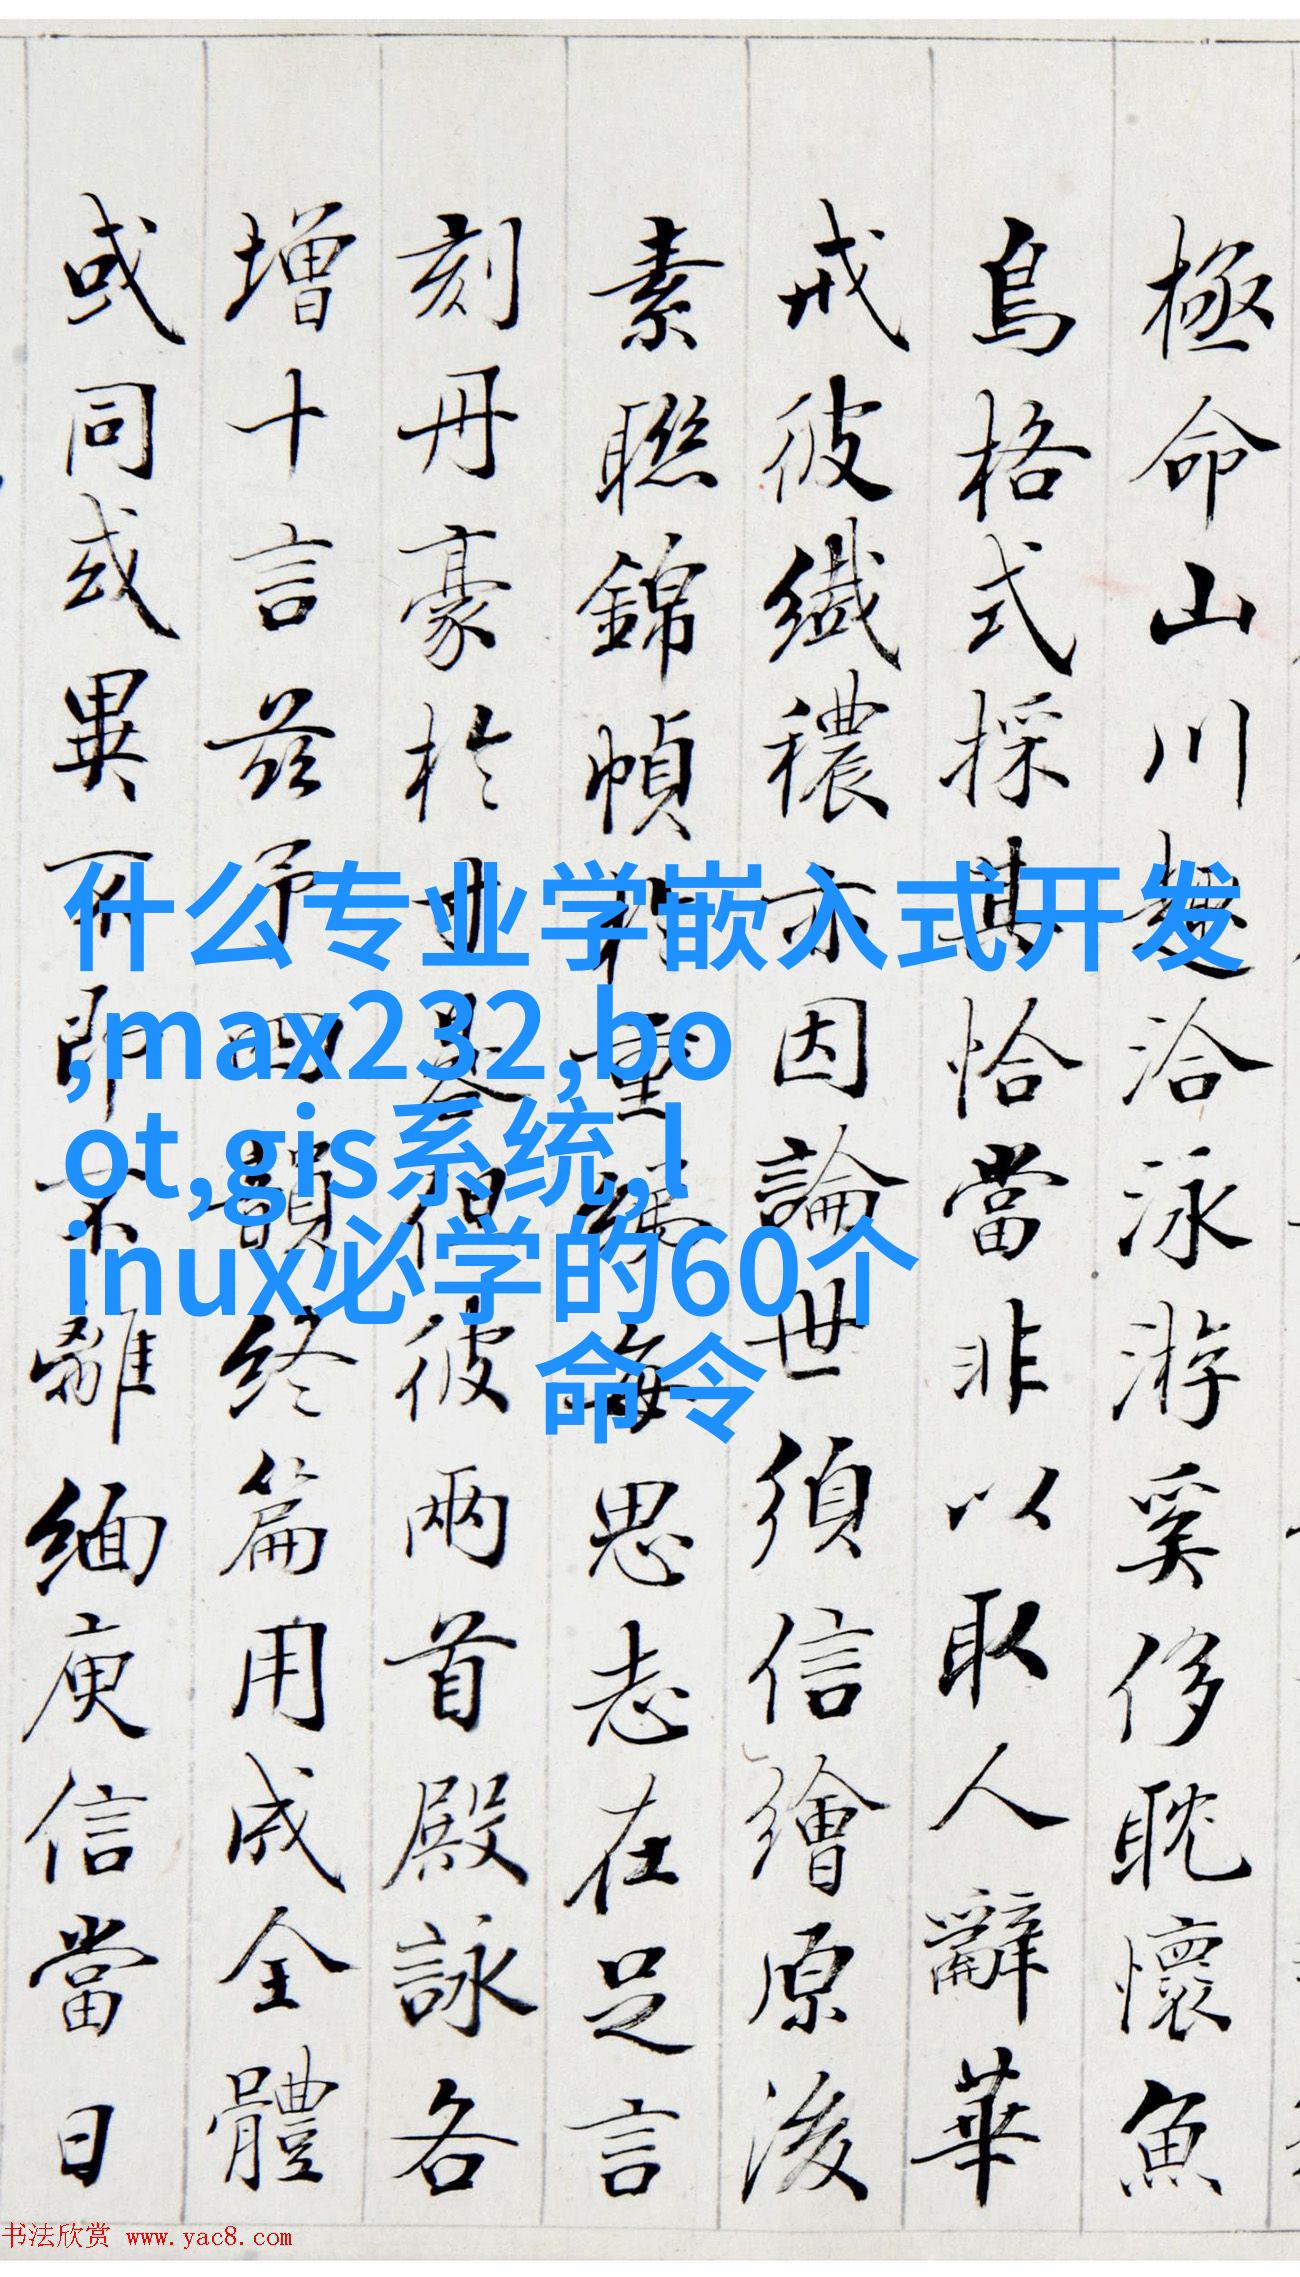 什么专业学嵌入式开发
,max232,bo
ot,gis系统,l
inux必学的60个
命令
極命山川趣洽泳游奚侈耽懷魚
鳥格式採其恰當非以取人辭華
戒彼纖穠亦因論世須信繪原後
素聯錦幀重每思志在足言
刻丹豪於得彼兩首殿詠各
增十言茲予四韻終篇用成全體
或同或異即不離緬庾信當日
书法欣赏 www.yac8.com